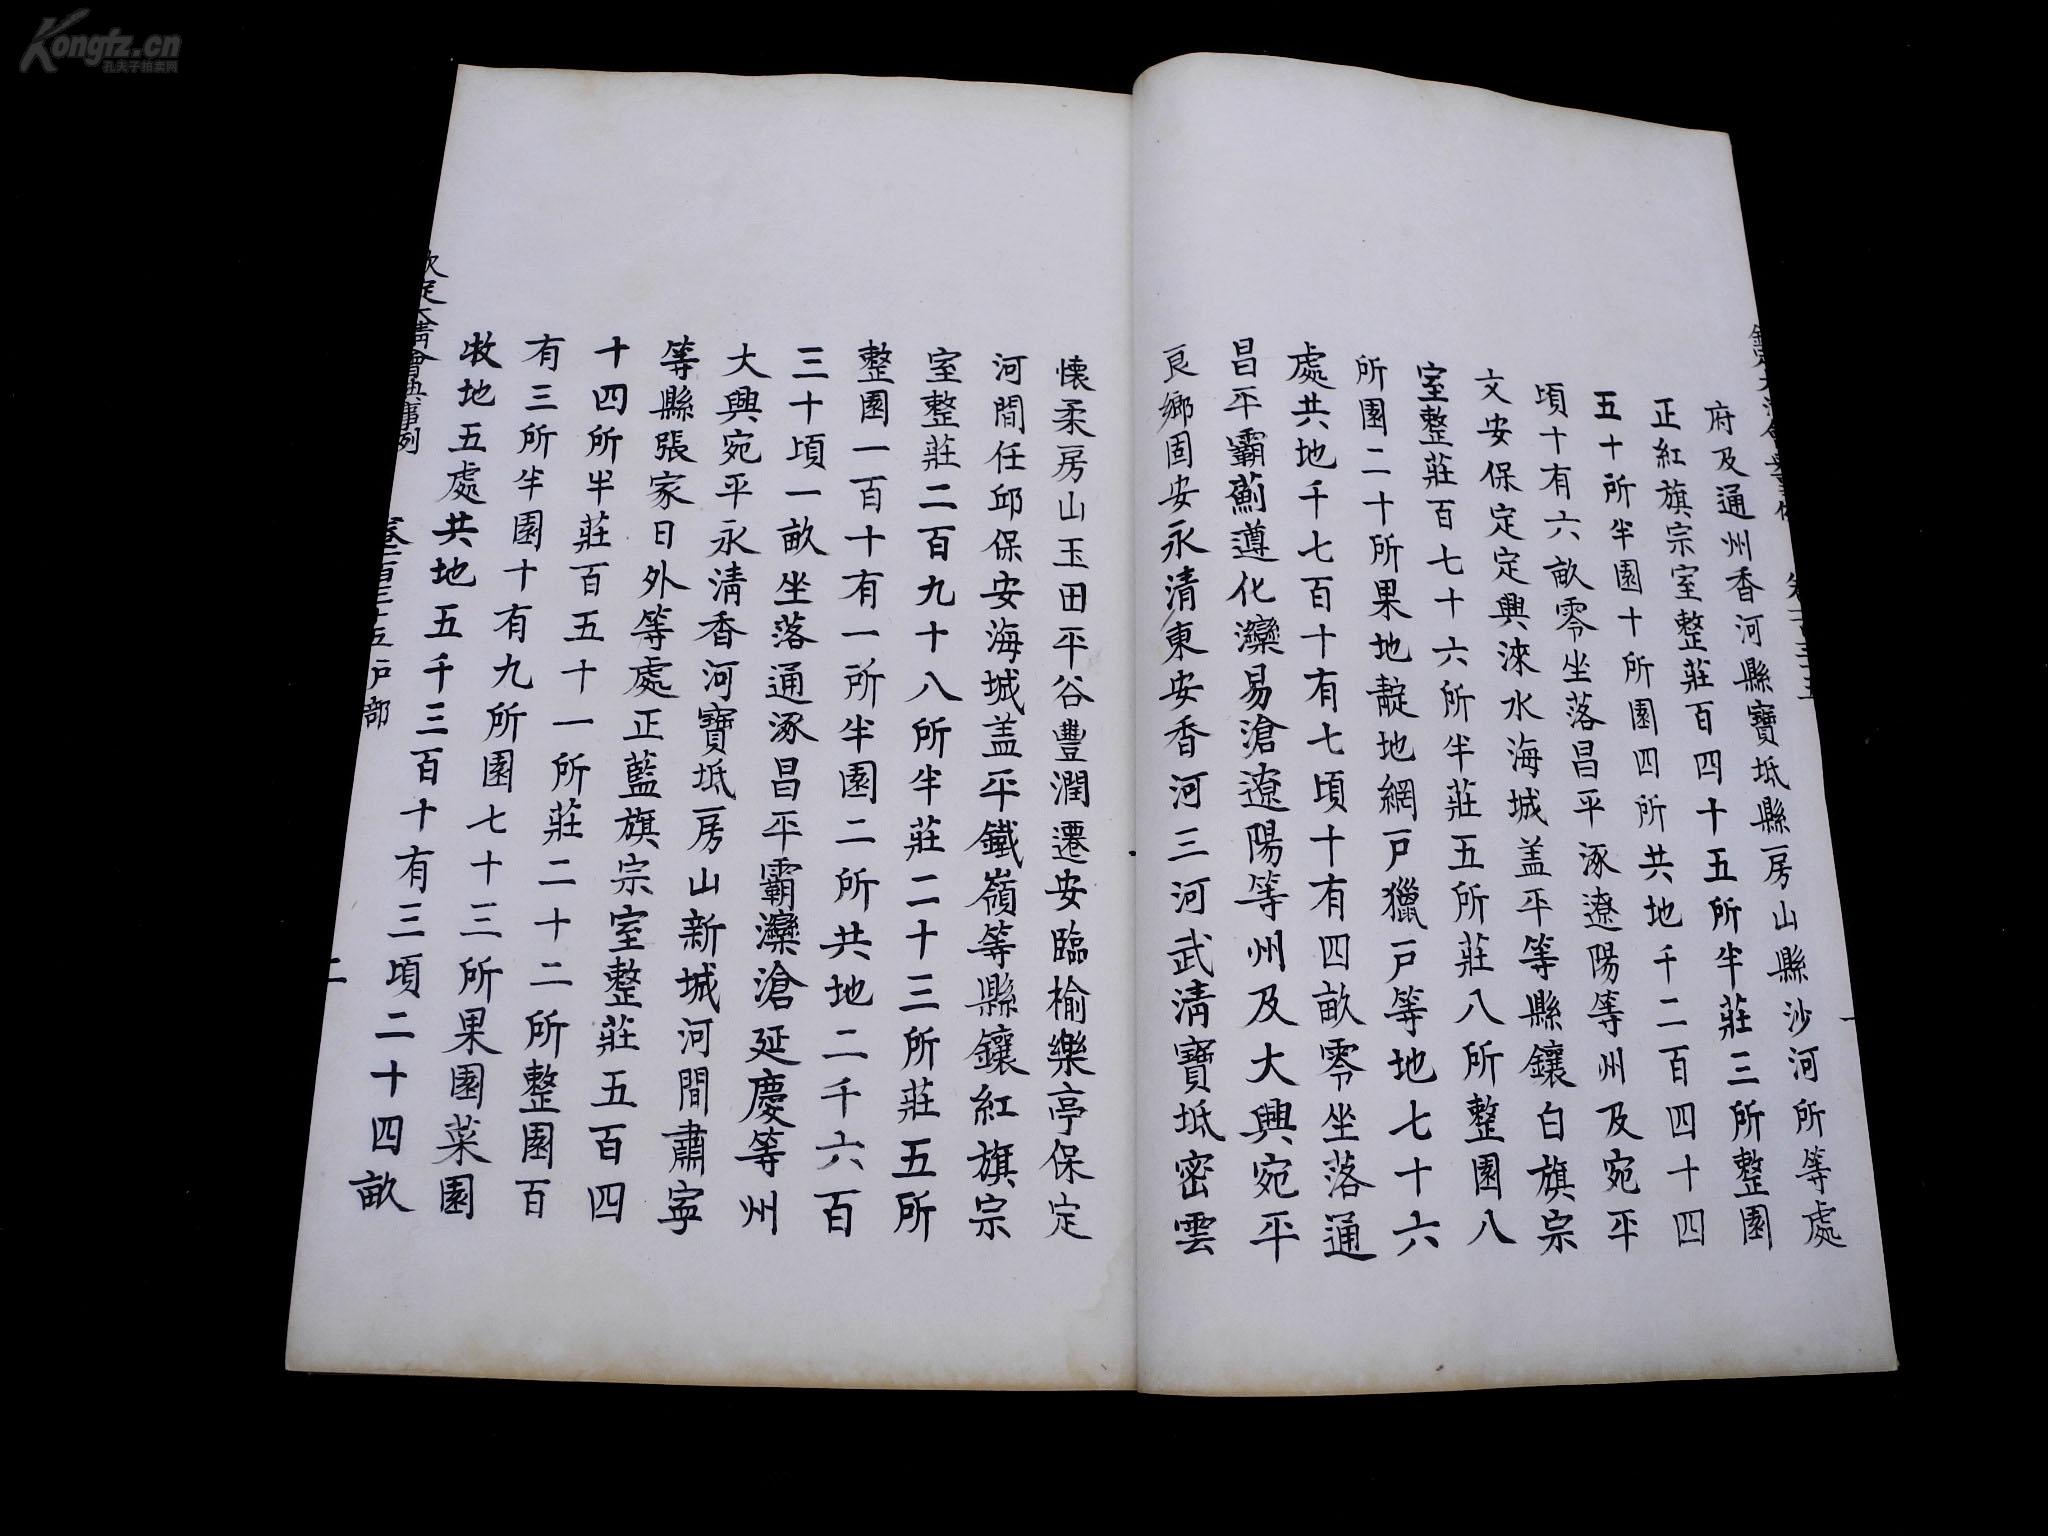 Kongfz.cn
孔夫子拍卖网
府及通州香河縣寶坻縣房山縣沙河所等處
正紅旗宗室整莊百四十五所半莊三所整園
五十所半園十所園四所共地千二百四十四
頃十有六畝零坐落昌平涿遼陽等州及宛平
文安保定定興淶水海城盖平等縣鑲白旗宗
室整莊百七十六所半莊五所莊八所整園八
所園二十所果地靛地網戸獵戸等地七十六
處共地千七百十有七頃十有四畝零坐落通
昌平霸薊遵化灤易滄遼陽等州及大興宛平
良鄉固安永清東安香河三河武清寶坻密雲
懐柔房山玉田平谷豐潤遷安臨榆樂亭保定
河間任邱保安海城盖平鐵嶺等縣鑲紅旗宗
室整莊二百九十八所半莊二十三所莊五所
整園一百十有一所半園二所共地二千六百
三十頃一畝坐落通涿昌平霸灤滄延慶等州
大興宛平永清香河寶坻房山新城河間肅寧
等縣張家口外等處正藍旗宗室整莊五百四
十四所半莊百五十一所莊二十二所整園百
有三所半園十有九所園七十三所果園菜園
牧地五處共地五千三百十有三頃二十四畝
欽定大清會典事例 卷一百三十五戸部 二